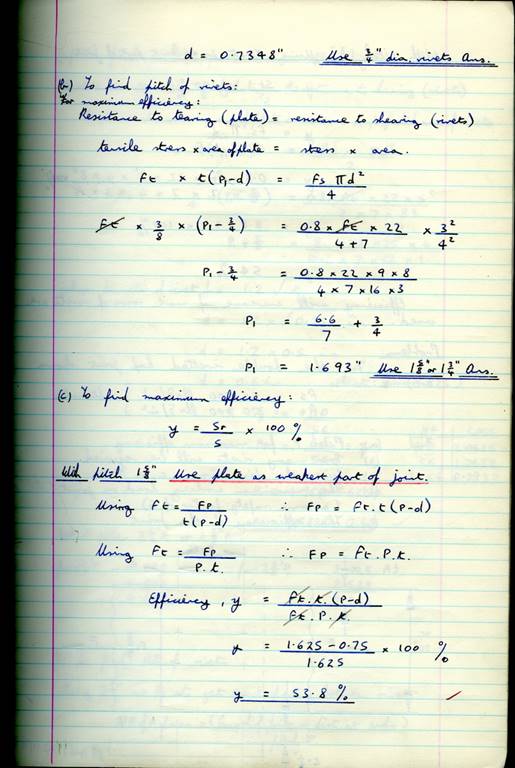 d = 0.7348" Use 3/4" dia. rivets Ans.
(b) To find pitch of rivets:
For maximum efficiency:
Resistance to tearing (plate) = resistance to shearing (rivets)
tensile stress x area of plate = stress x area.
Ft x t(P1-d) = Fs πd²/4
Ft x 3/8 x (P1 - 3/4) = 0.8 x Ft x 22 / 4+7 x 3²/4²
P1 - 3/4 = 0.8 x 22 x 9 x 8 / 4 x 7 x 16 x 3
P1 = 6.6/7 + 3/4
P1 = 1.693" Use 1 5/8" or 1 3/4" Ans.
(c) To find maximum efficiency:
y = Sr/S x 100 %
With pitch 1 5/8" Use plate as weakest part of joint.
Using Ft = FP / t(P-d) ∴ FP = Ft.t(P-d)
Using Ft = FP / P.t. ∴ FP = Ft.P.t.
Efficiency, y = Ft.t.(P-d) / Ft.P.t.
y = 1.625 - 0.75 / 1.625 x 100 %
y = 53.8 %